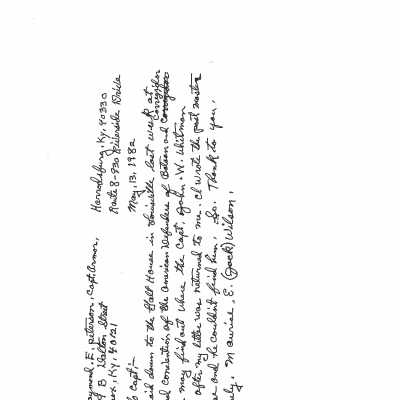 Harrodsburg, Ky, 40330
Route 8-930 Riverside Drive
May, 13, 1982
E. Peterson, Capt, Armor,
B. Dalton Street
Ky, 40121
Capt;-
down to the Hall House in Louisville last week at
of the American Defenders of Bataan and Corregidor
may find out where the Capt. John. W. Whitman
after my letter was returned to me. I wrote the post master
and he couldn't find him. So. Thank to you,
Maurice. E. (Jack) Wilson.